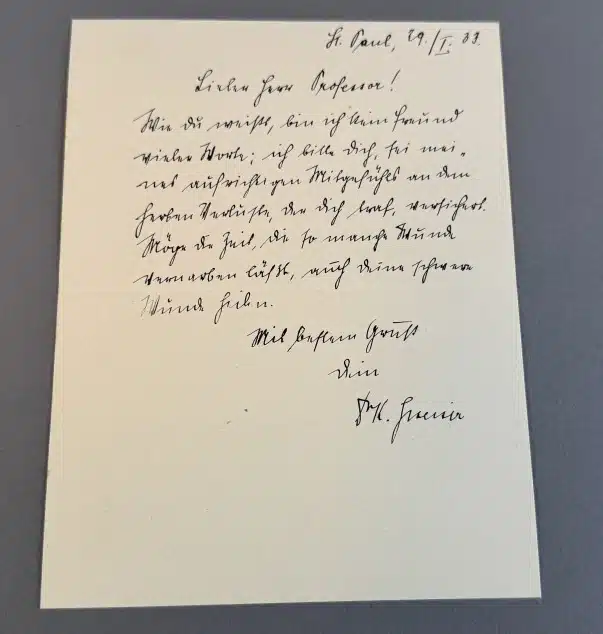 St. Paul, 29./I. 33.
Lieber Herr Professor!
Wie du weißt, bin ich kein Freund
vieler Worte; ich bitte dich, sei mei-
nes aufrichtigen Mitgefühls an dem
herben Verluste, der dich traf, versichert.
Möge die Zeit, die so manche Wunde
vernarben läßt, auch deine schwere
Wunde heilen.
Mit bestem Gruß
dein
Dr K.